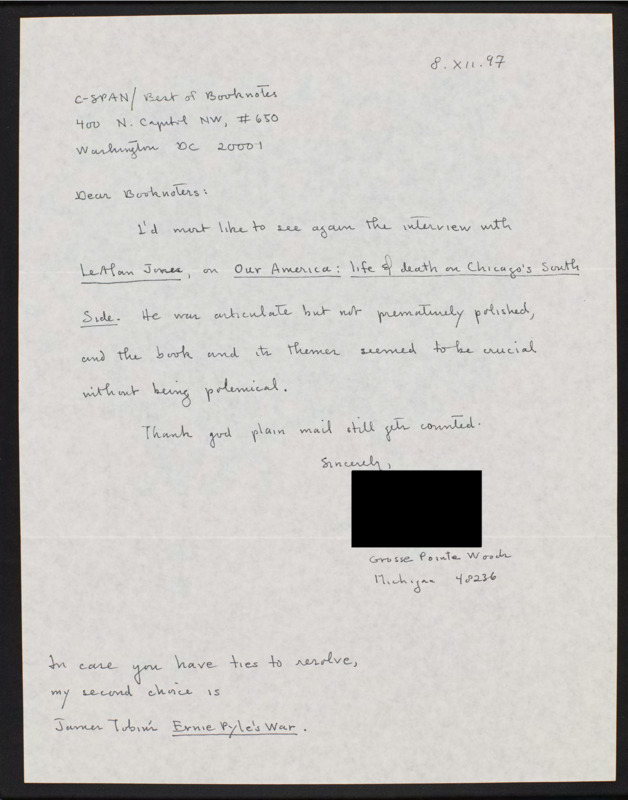 8. XII. 97
C-SPAN/Best of Booknotes
400 N. Capitol NW, #650
Washington DC 20001
Dear Booknoters:
I'd most like to see again the interview with
LeAlan Jones, on Our America: life & death on Chicago's South
Side. He was articulate but not prematurely polished,
and the book and its themes seemed to be crucial
without being polemical.
Thank god plain mail still gets counted.
Sincerely,
Grosse Pointe Woods
Michigan 48236
In case you have ties to resolve,
my second choice is
James Tobin's Ernie Pyle's War.